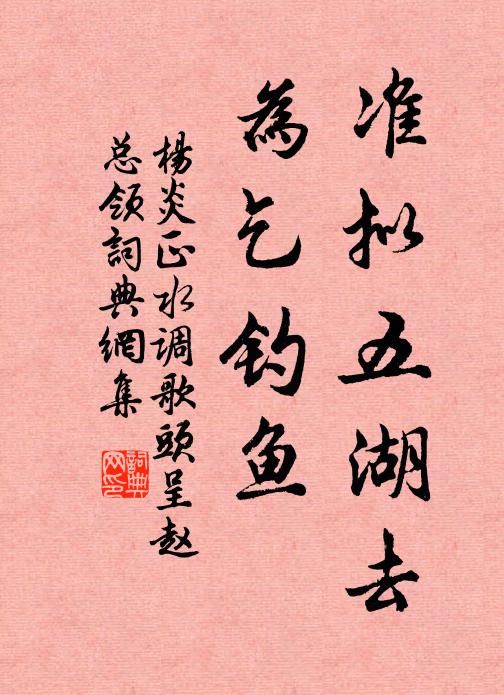 准拟五湖去
為乞钓鱼
楊炎正水调歌頭呈赵
总领詞典網集
詞典
网印